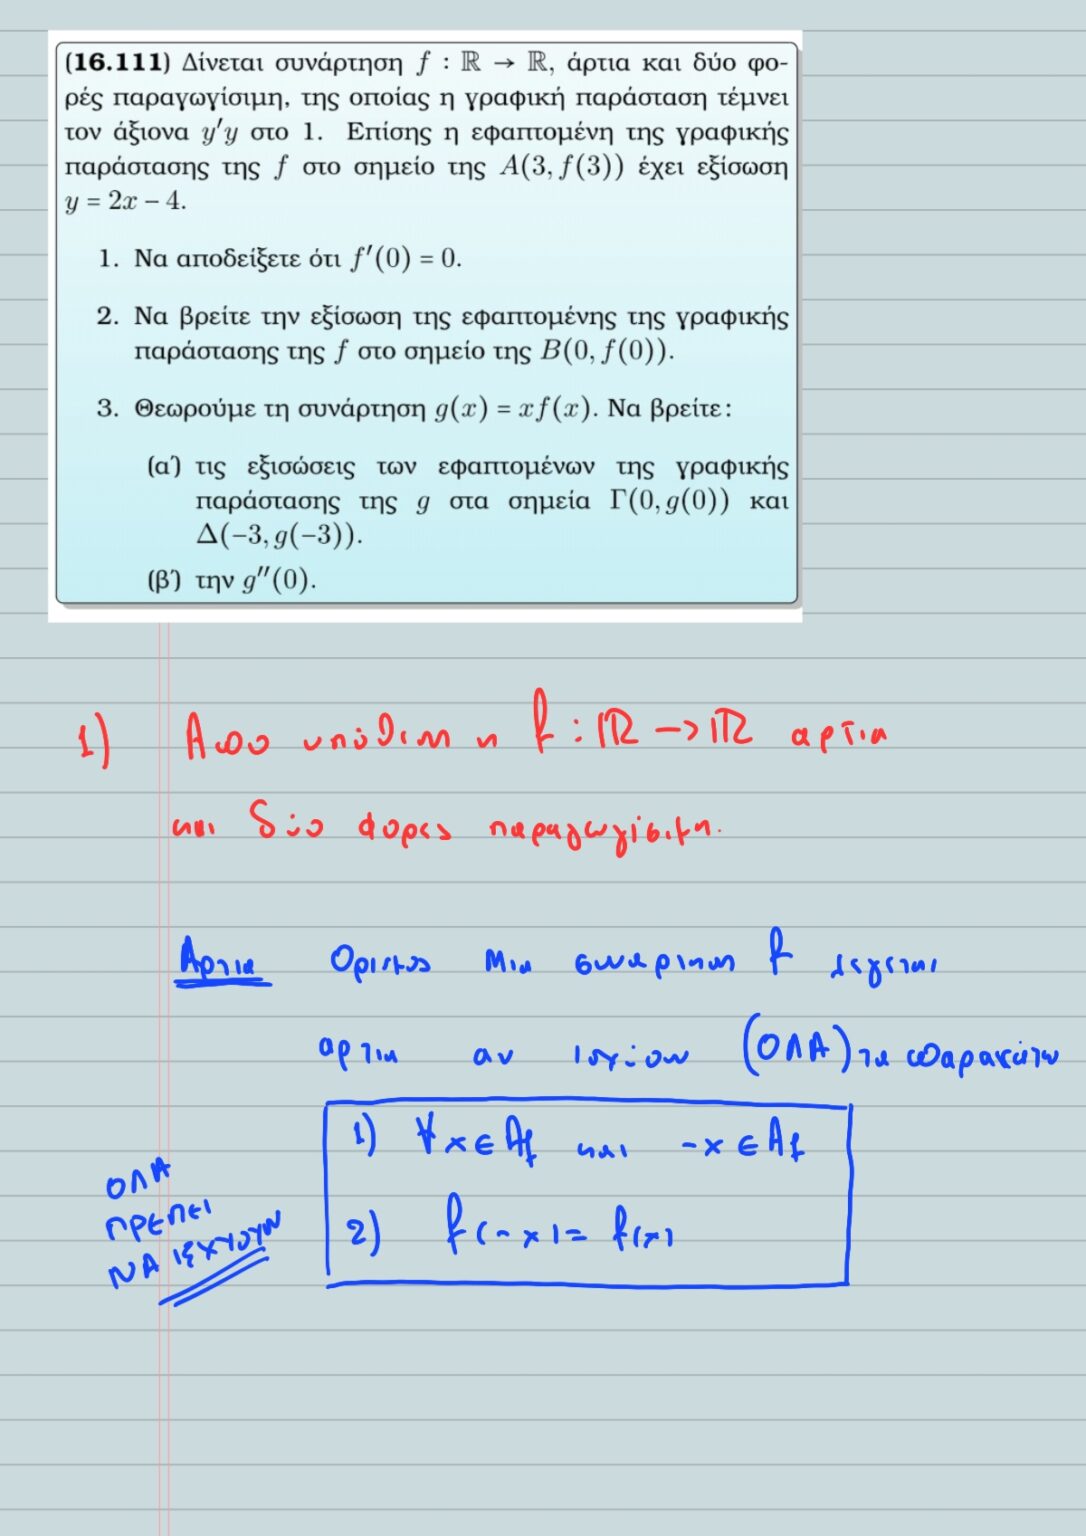 (16.111) Δίνεται συνάρτηση f : ℝ → ℝ, άρτια και δύο φο-
ρές παραγωγίσιμη, της οποίας η γραφική παράσταση τέμνει
τον άξιονα y′y στο 1. Επίσης η εφαπτομένη της γραφικής
παράστασης της f στο σημείο της A(3, f(3)) έχει εξίσωση
y = 2x − 4.
1. Να αποδείξετε ότι f′(0) = 0.
2. Να βρείτε την εξίσωση της εφαπτομένης της γραφικής
παράστασης της f στο σημείο της B(0, f(0)).
3. Θεωρούμε τη συνάρτηση g(x) = xf(x). Να βρείτε:
(α΄) τις εξισώσεις των εφαπτομένων της γραφικής
παράστασης της g στα σημεία Γ(0, g(0)) και
Δ(−3, g(−3)).
(β΄) την g″(0).
1) Απο υπόθεση η f : ℝ → ℝ αρτια
και δύο φορες παραγωγίσιμη.
Αρτια Ορισμος Μια συναρτηση f λεγεται
αρτια αν ισχύουν (ΟΛΑ) τα παρακάτω
1) ∀x ∈ Af και -x ∈ Af
2) f(-x) = f(x)
ΟΛΑ
ΠΡΕΠΕΙ
ΝΑ ΙΣΧΥΟΥΝ